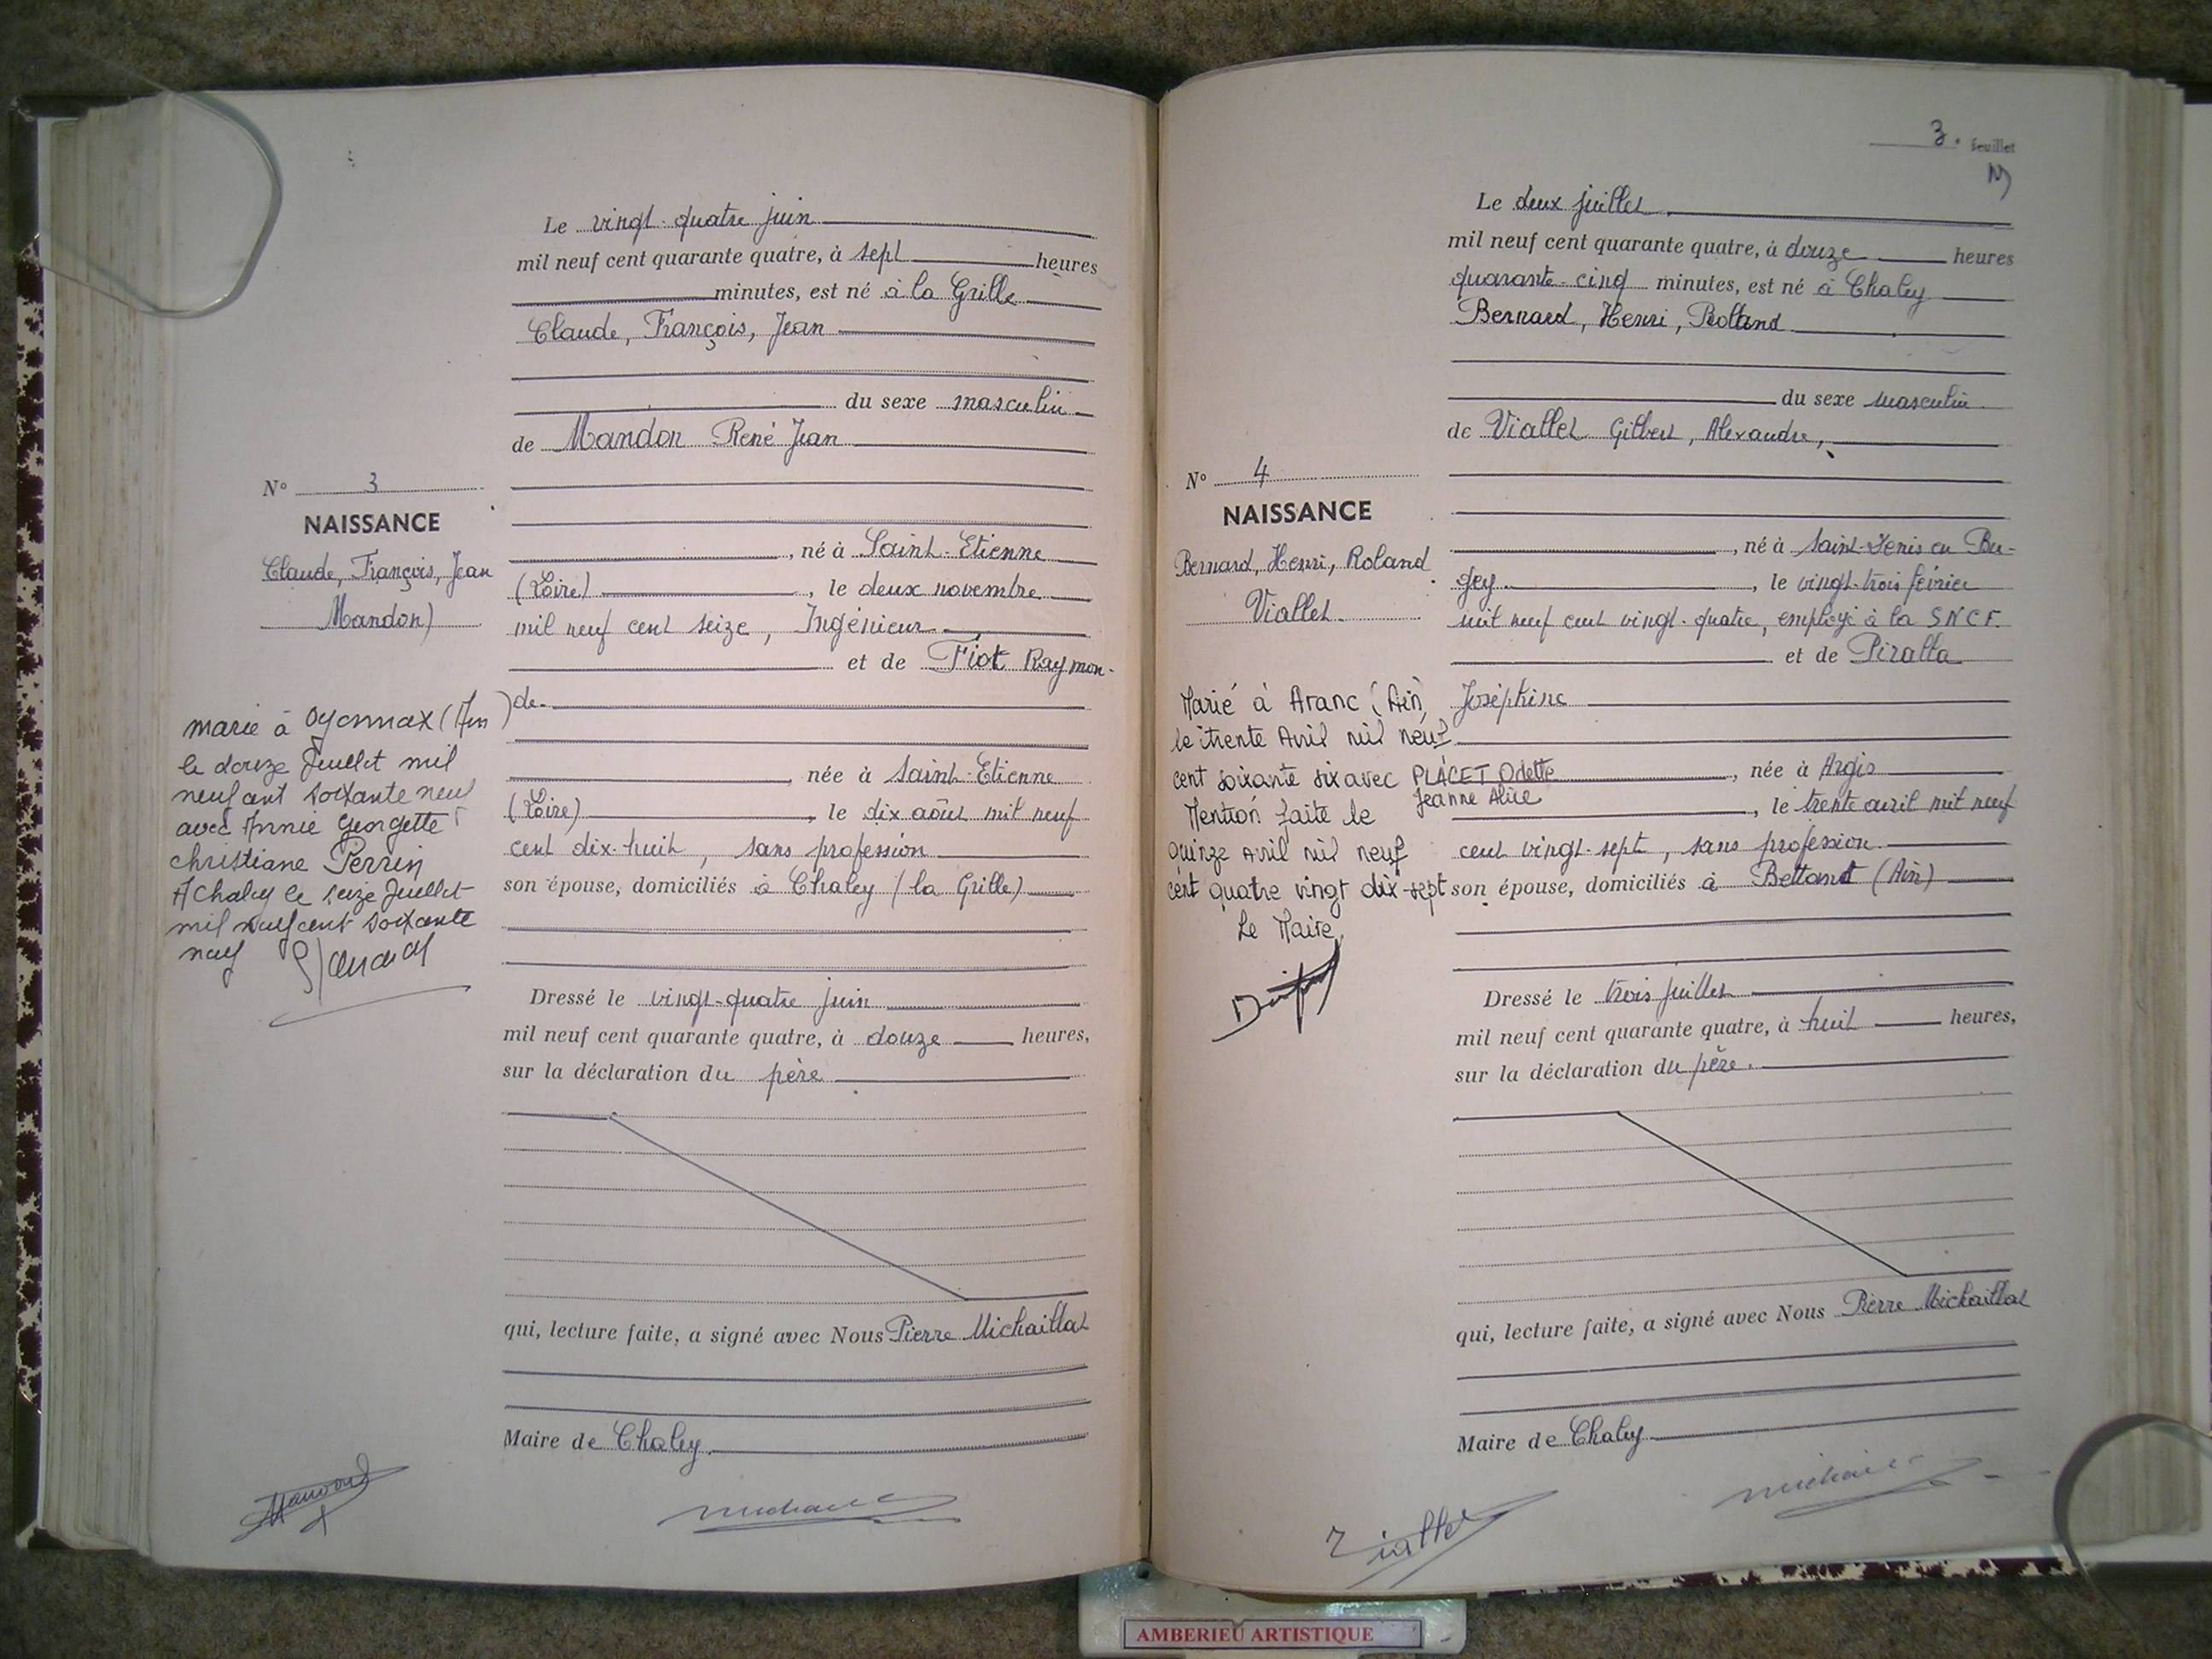 Le vingt-quatre juin
mil neuf cent quarante quatre, à sept heures
minutes, est né à la Grille
Claude, François, Jean
du sexe masculin
de Mandon René Jean
N° 3
NAISSANCE
Claude, François, Jean
Mandon)
, né à Saint-Etienne
(Loire) , le deux novembre
mil neuf cent seize, Ingénieur
et de Fiot Raymon-
de
née à Saint-Etienne
(Loire) , le dix août mil neuf
cent dix-huit, sans profession
son épouse, domiciliés à Chaley (la Grille)
marié à Oyonnax (Ain)
le douze Juillet mil
neuf cent soixante neuf
avec Annie Georgette
christiane Perrin
A Chaley le seize Juillet
mil neuf cent soixante
neuf
Dressé le vingt-quatre juin
mil neuf cent quarante quatre, à douze heures,
sur la déclaration du père
qui, lecture faite, a signé avec Nous Pierre Michaillat
Maire de Chaley
3. feuillet
Le deux juillet
mil neuf cent quarante quatre, à douze heures
quarante-cinq minutes, est né à Chaley
Bernard, Henri, Rolland
du sexe masculin
de Viallet Gilbert, Alexandre,
N° 4
NAISSANCE
Bernard, Henri, Roland
Viallet
, né à Saint-Denis en Bu-
gey , le vingt-trois février
mil neuf cent vingt-quatre, employé à la SNCF.
et de Piralla
Joséphine
, née à Argis
, le trente avril mil neuf
cent vingt-sept, sans profession
son épouse, domiciliés à Bettant (Ain)
Marié à Aranc (Ain)
le trente Avril mil neuf
cent soixante six avec PLACET Odette
Jeanne Alice
Mention faite le
Quinze avril mil neuf
cent quatre vingt dix-sept
Le Maire,
Dressé le trois juillet
mil neuf cent quarante quatre, à huit heures,
sur la déclaration du père.
qui, lecture faite, a signé avec Nous Pierre Michaillat
Maire de Chaley
Viallet
AMBERIEU ARTISTIQUE